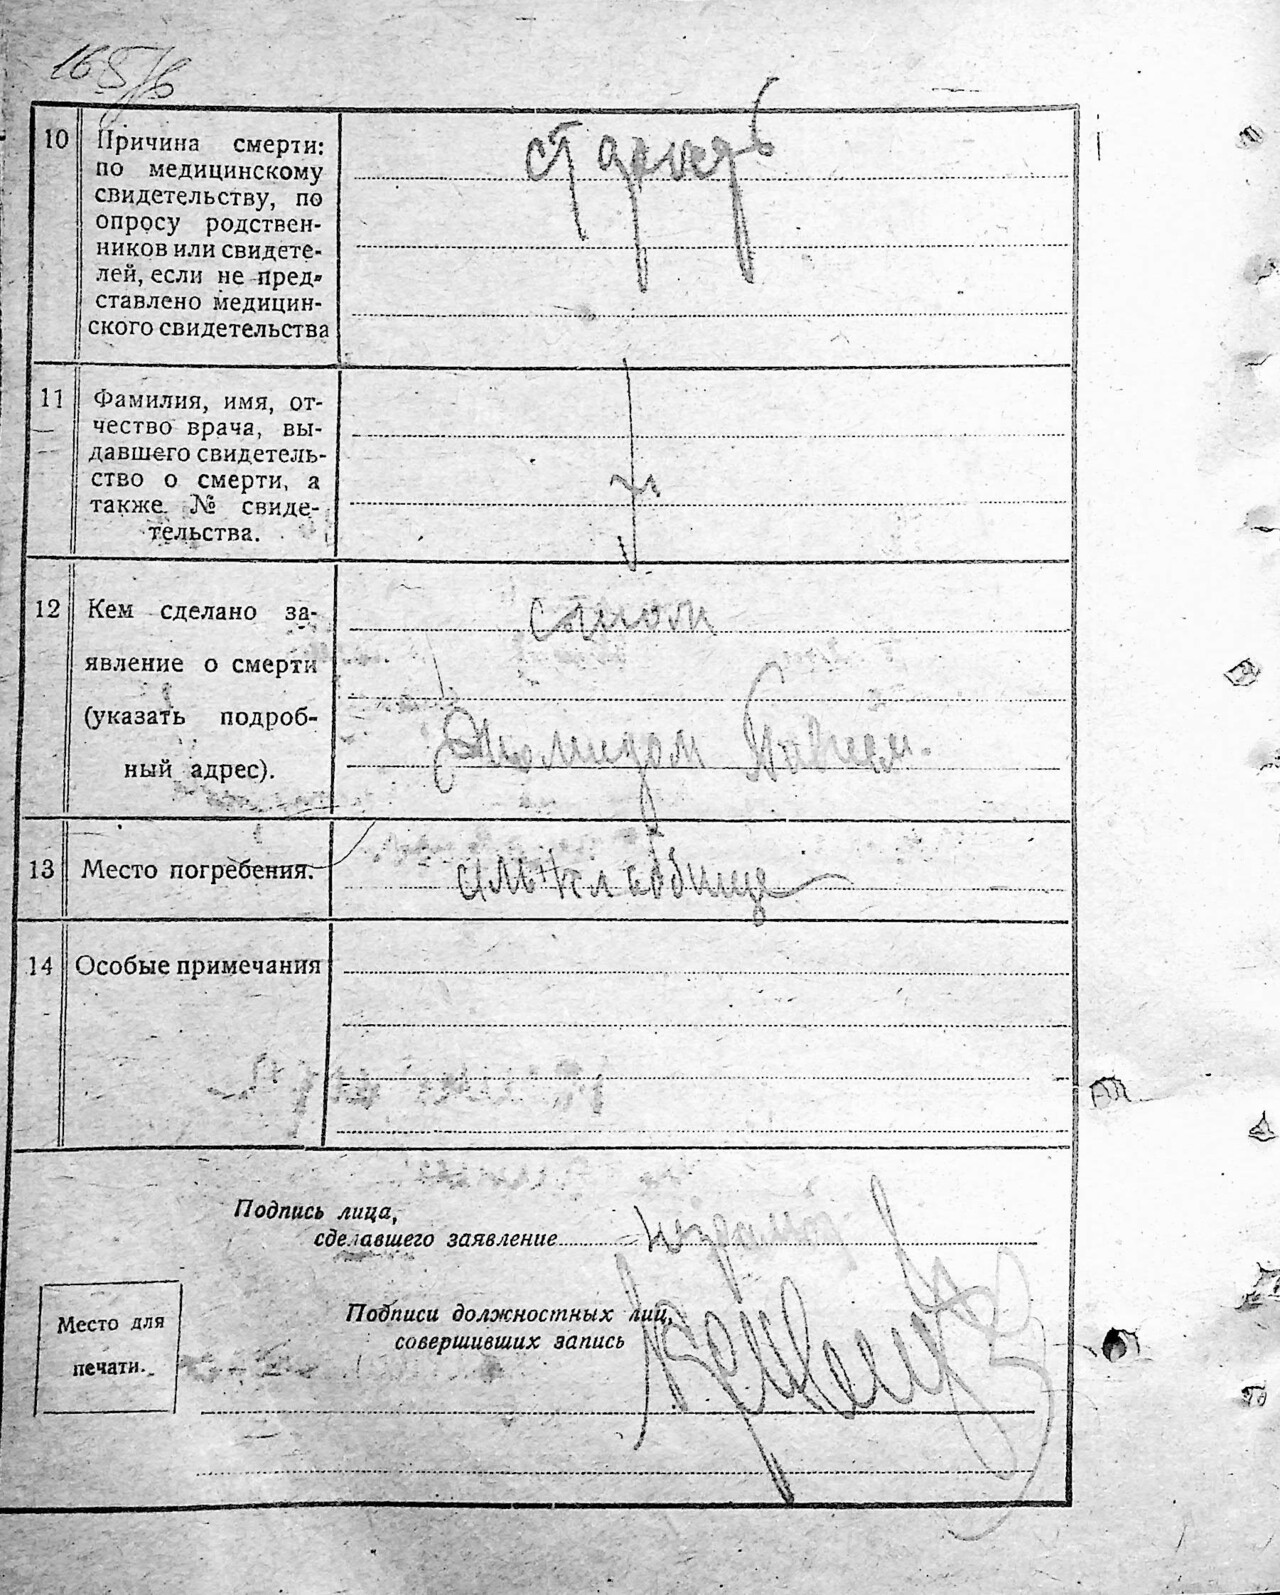 10
Причина смерти:
по медицинскому
свидетельству, по
опросу родствен-
ников или свидете-
лей, если не пред-
ставлено медицин-
ского свидетельства
старость
11
Фамилия, имя, от-
чество врача, вы-
давшего свидетель-
ство о смерти, а
также № свиде-
тельства.
12
Кем сделано за-
явление о смерти
(указать подроб-
ный адрес).
сыном
13
Место погребения.
кладбище
14
Особые примечания
Подпись лица,
сделавшего заявление
Подписи должностных лиц,
совершивших запись
Место для
печати.